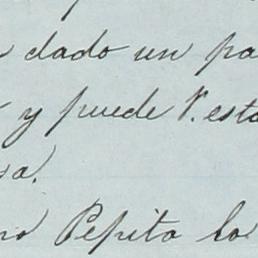 dado un pa
y puede V. esta
sa.
no Pepito la